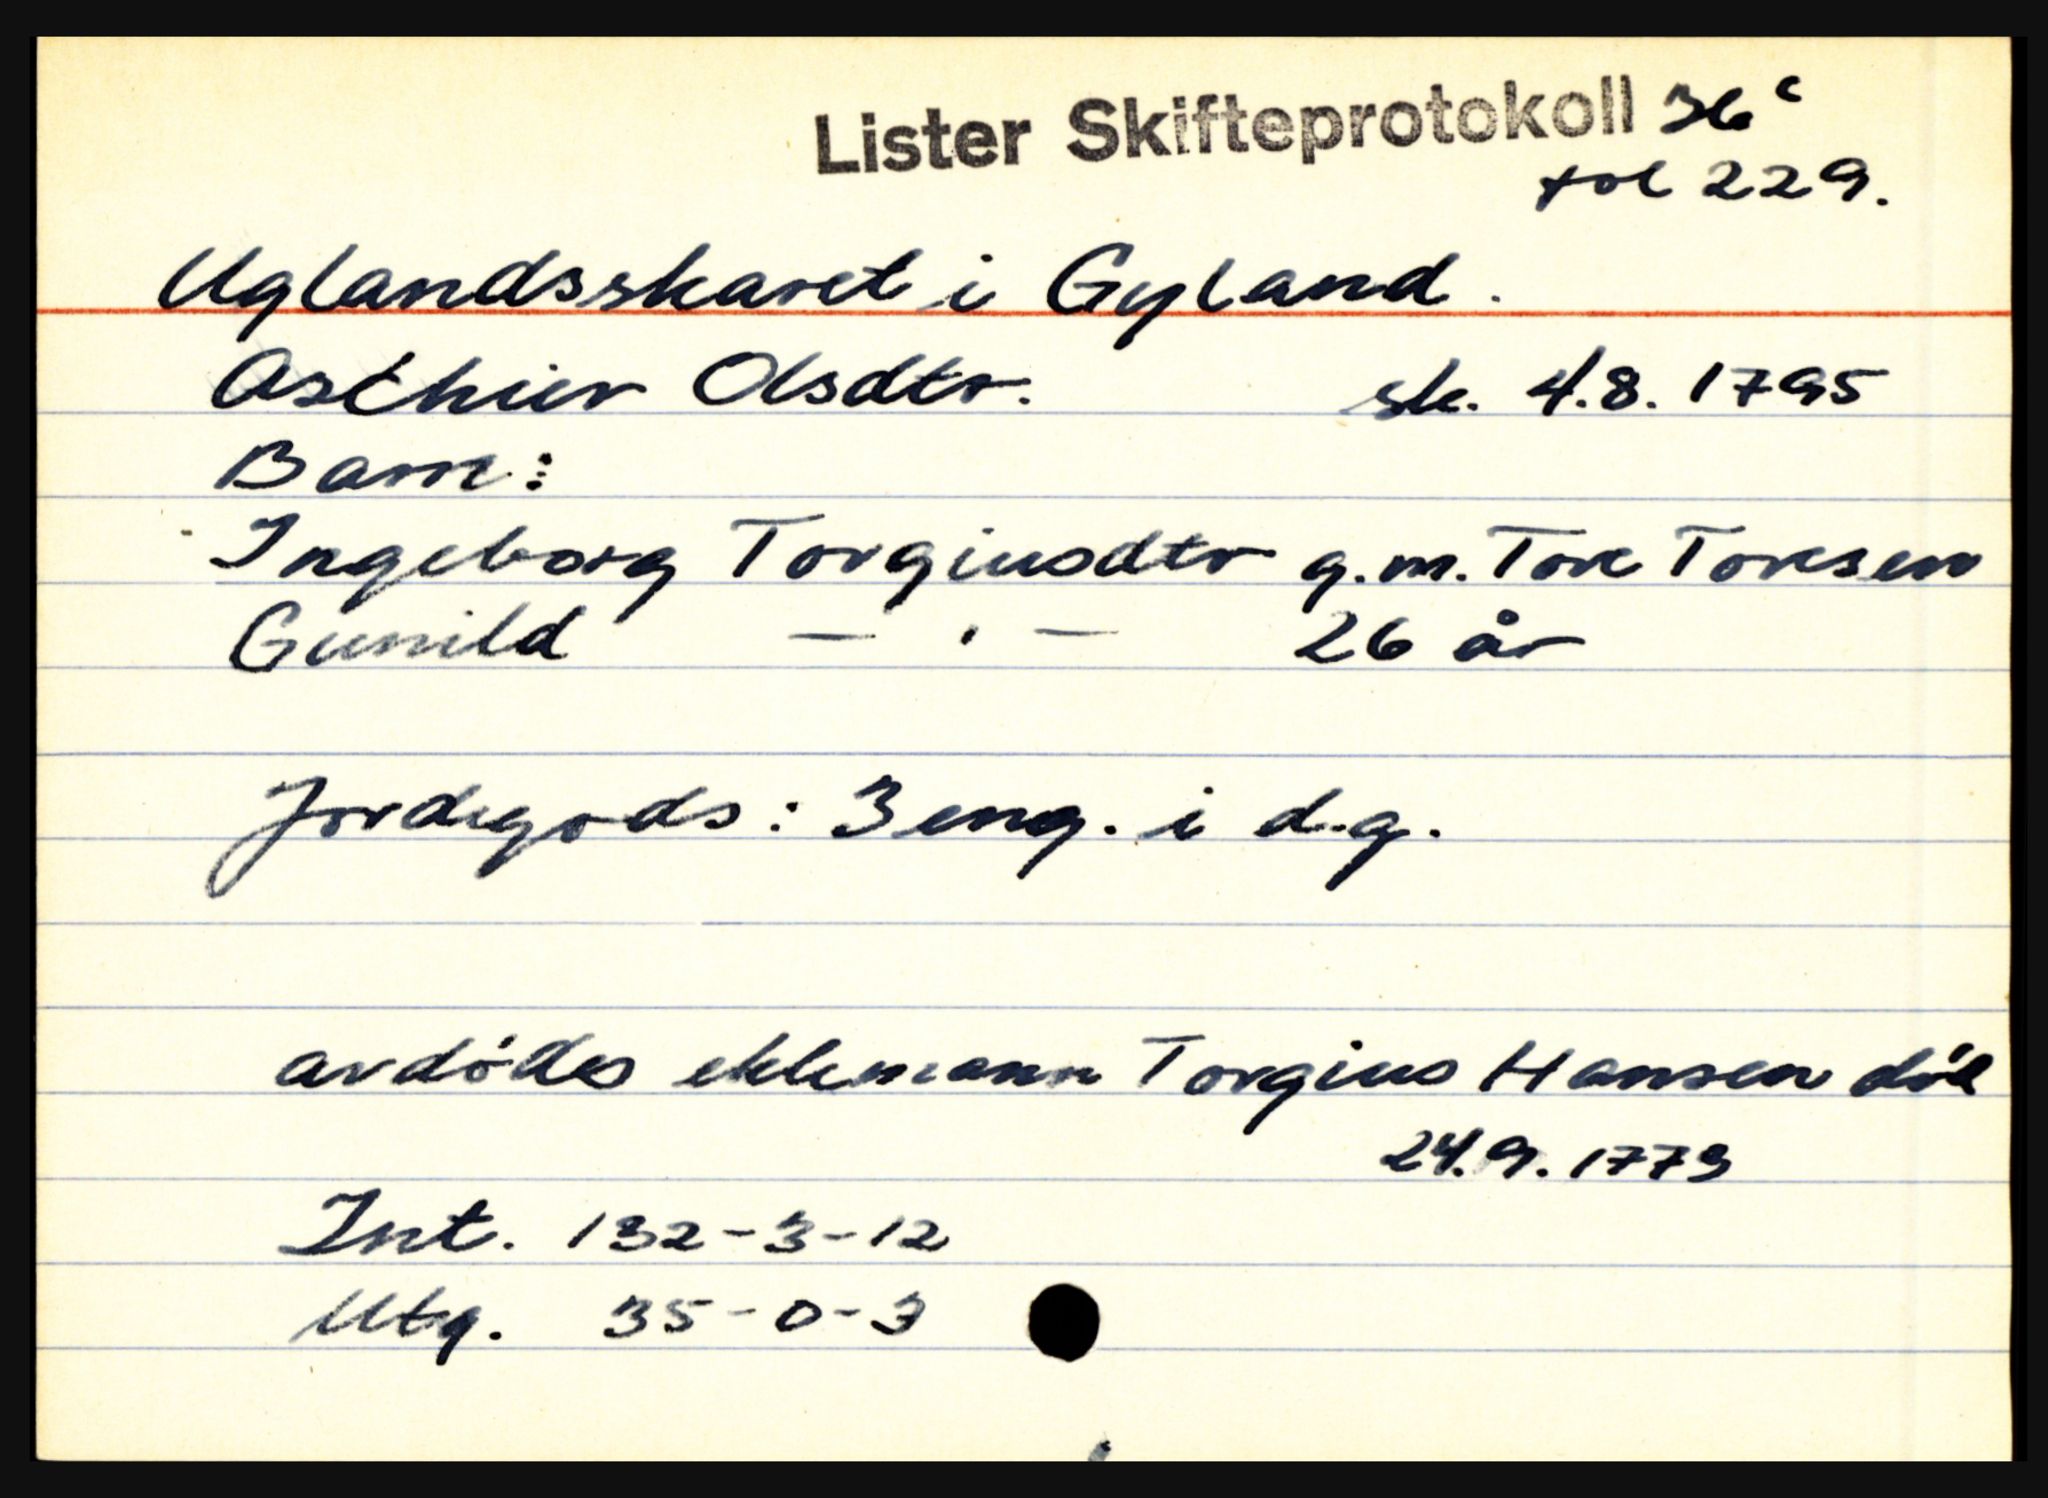 Lister Skifteprotokoll 36 c
fol 229.
Uglandsskaret i Gyland.
Aschier Olsdtr. sk. 4.8. 1795
Barn:
Ingeborg Torgiusdtr g.m. Tore Toresen
Gunild — . — 26 år
Jordegods: 3 eng. i d.g.
avdödes ektemann Torgius Hansen död
24.9. 1773
Int. 132-3-12
Utg. 35-0-3